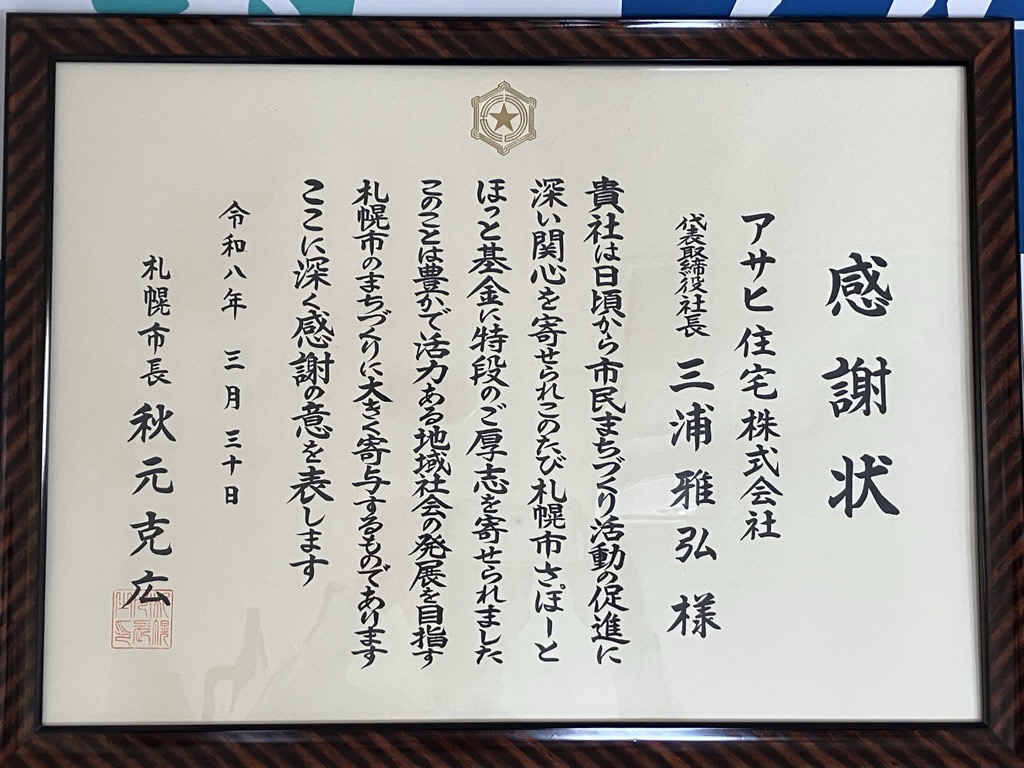 感謝状
アサヒ住宅株式会社
代表取締役社長 三浦雅弘様
貴社は日頃から市民まちづくり活動の促進に
深い関心を寄せられこのたび札幌市さぽーと
ほっと基金に特段のご厚志を寄せられました
このことは豊かで活力ある地域社会の発展を目指す
札幌市のまちづくりに大きく寄与するものであります
ここに深く感謝の意を表します
令和八年 三月 三十日
札幌市長 秋元克広